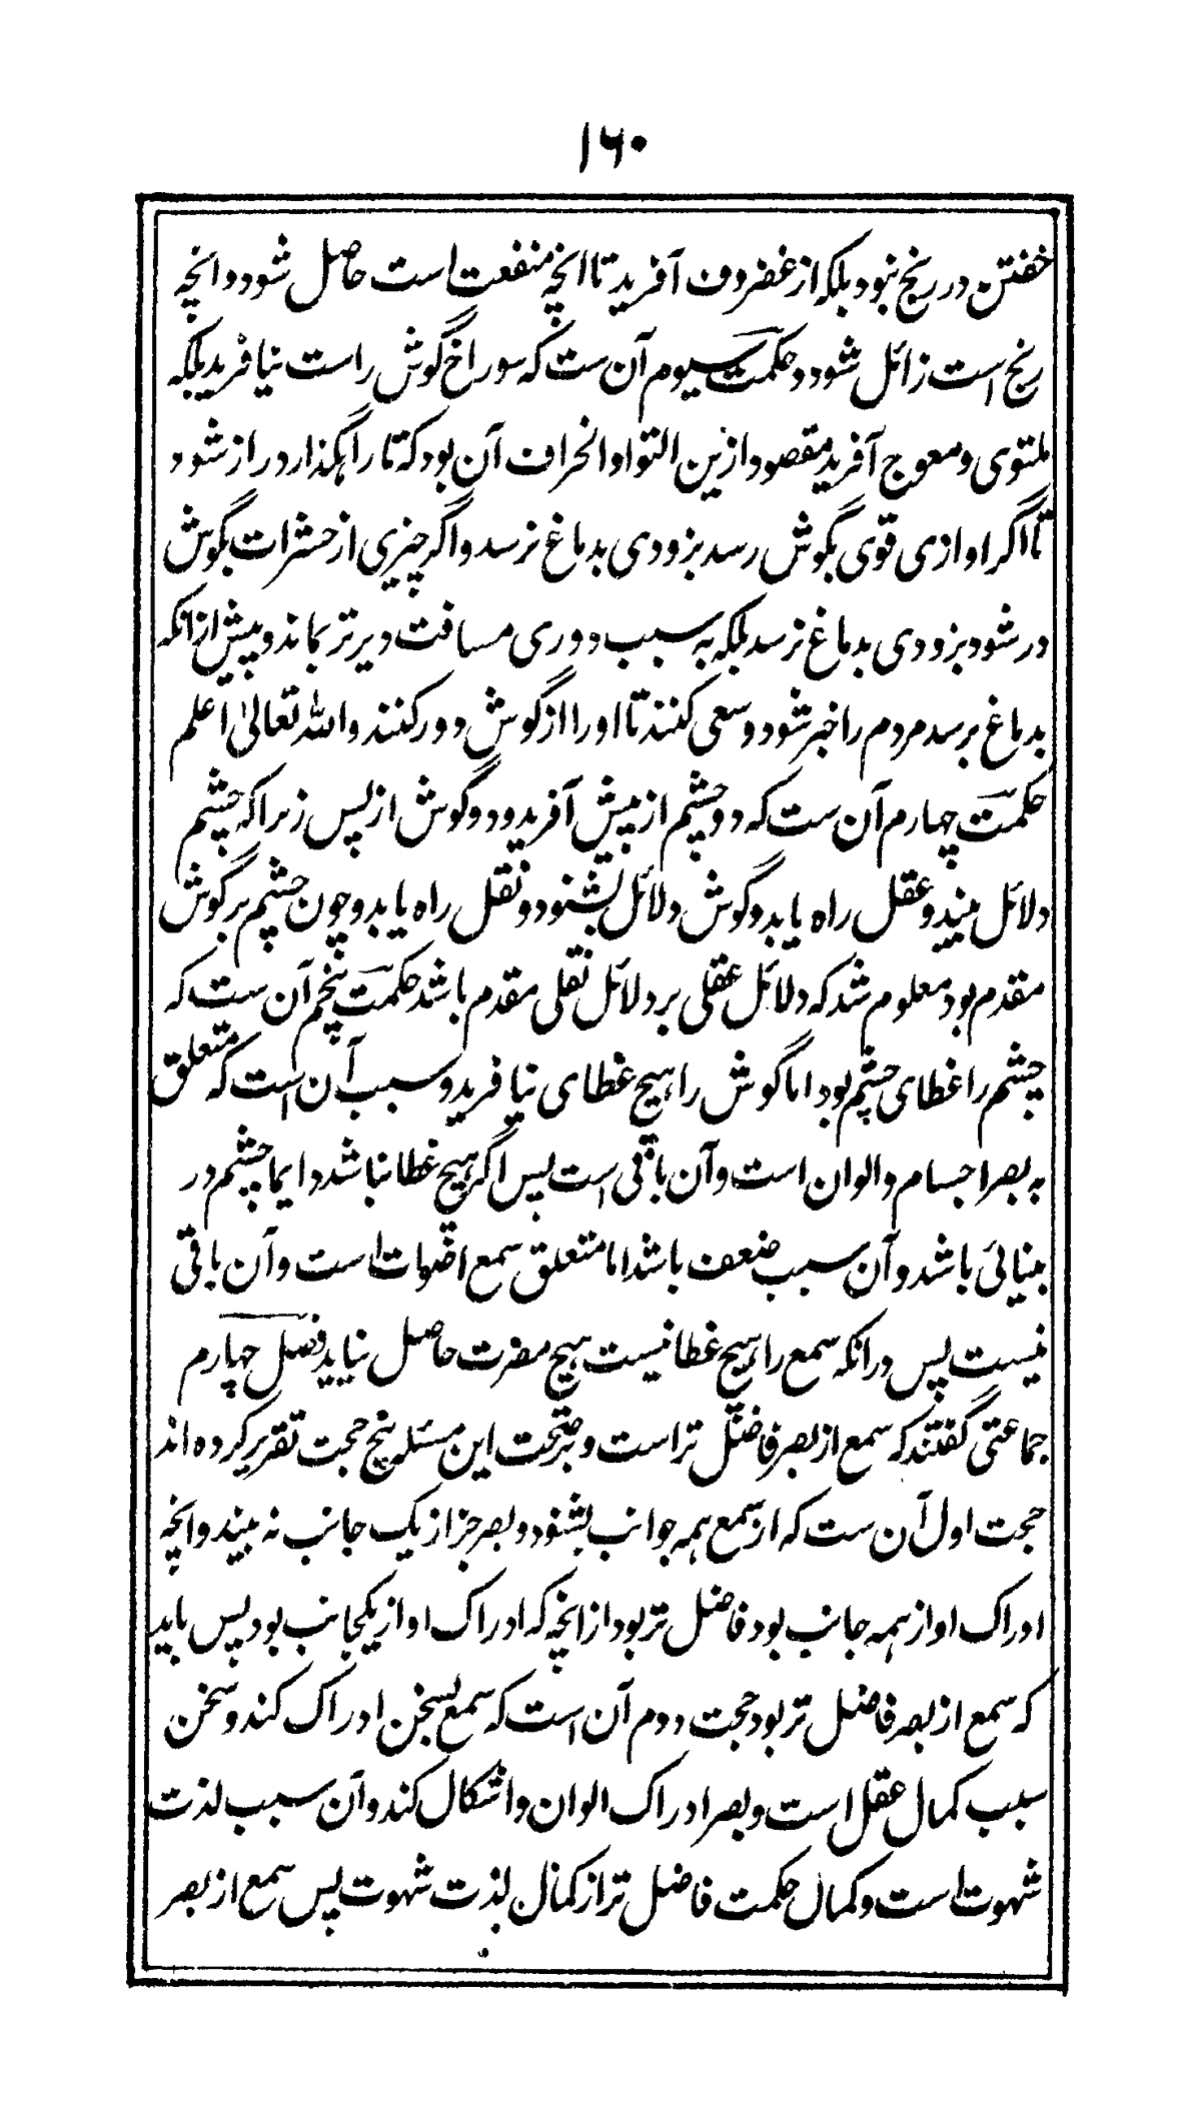 ۱۶۰
خفتن در رنج نبود بلکه از غضروف آفرید تا انچه منفعت است حاصل شود و انچه
رنج است زائل شود و حکمت سیوم آن ست که سوراخ گوش راست نیافرید بلکه
ملتوی و معوج آفرید مقصود ازین التوا و انحراف آن بود که تا راهگذار دراز شود
تا اگر اوازی قوی بگوش رسد بزودی بدماغ نرسد و اگر چیزی از حشرات بگوش
در شود بزودی بدماغ نرسد بلکه به سبب دوری مسافت دیرتر بماند و پیش ازانکه
بدماغ برسد مردم را خبر شود و سعی کنند تا او را از گوش دور کنند و الله تعالیٰ اعلم
حکمت چهارم آن ست که دو چشم از پیش آفرید و دو گوش از پس زیرا که چشم
دلائل بیند و عقل راه یابد و گوش دلائل بشنود و نقل راه یابد و چون چشم بر گوش
مقدم بود معلوم شد که دلائل عقلی بر دلائل نقلی مقدم باشد حکمت پنجم آن ست که
چشم را غطای چشم بود اما گوش را هیچ غطای نیافرید و سبب آن است که متعلق
به بصر اجسام و الوان است و آن باقی است پس اگر هیچ غطا نباشد دایما چشم در
بینائی باشد و آن سبب ضعف باشد اما متعلق سمع اصوات است و آن باقی
نیست پس درانکه سمع را هیچ غطا نیست هیچ مضرت حاصل نیاید فصل چهارم
جماعتی گفتند که سمع از بصر فاضل تر است و بر صحت این مسئله پنج حجت تقریر کرده اند
حجت اول آن ست که از سمع همه جوانب بشنود و بصر جز از یک جانب نه بیند و انچه
ادراک او از همه جانب بود فاضل تر بود از انچه که ادراک او از یکجانب بود پس باید
که سمع از بصر فاضل تر بود حجت دوم آن است که سمع بسخن ادراک کند و سخن
سبب کمال عقل است و بصر ادراک الوان و اشکال کند و آن سبب لذت
شهوت است و کمال حکمت فاضل تر از کمال لذت شهوت پس سمع از بصر